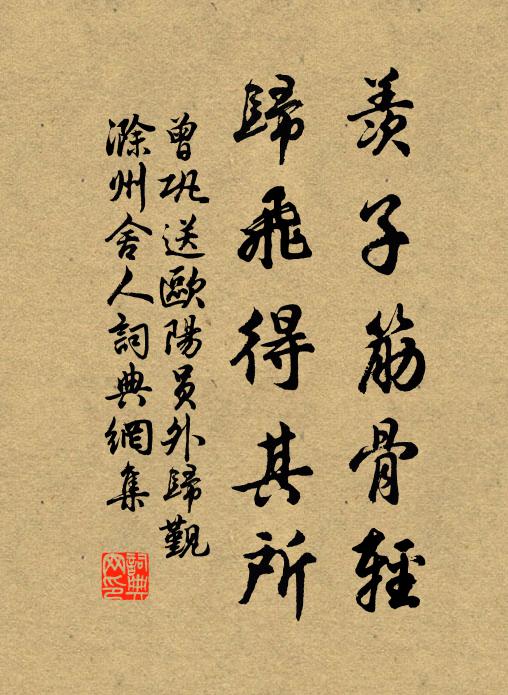 羨子筋骨輕
歸飛得其所
曾巩送歐陽員外歸覲
滁州舍人詞典網集
詞典
网印